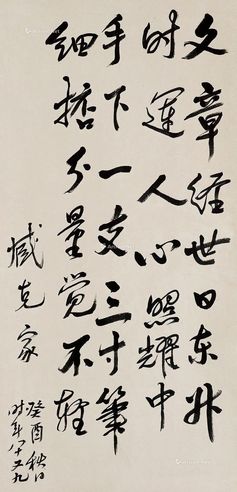 文章经世日东升
时运人心照耀中
手下一支三寸笔
细掂分量觉不轻
臧克家
癸酉秋日
时年八十又九